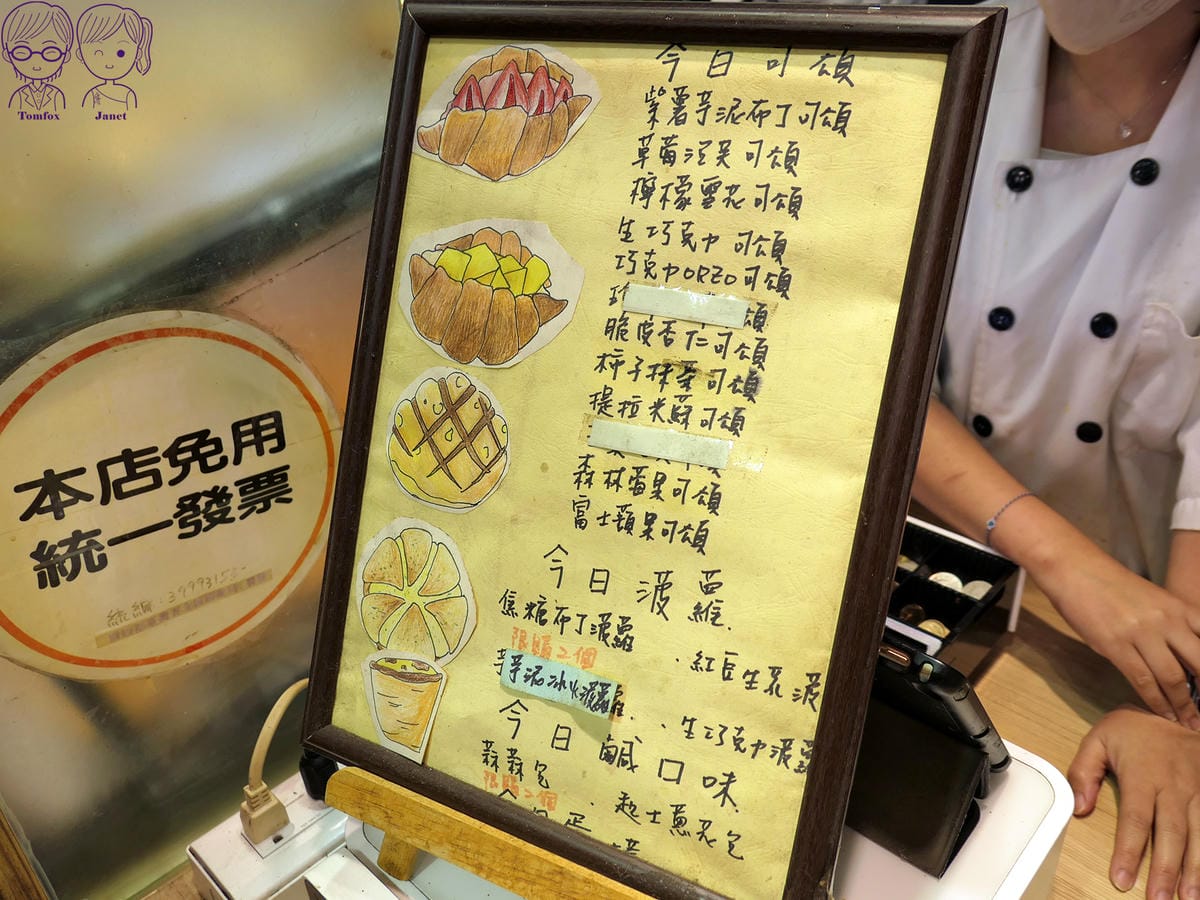 Tomfox
Janet
本店免用
統一發票
統編:39993153
今日可頌
紫薯芋泥布丁可頌
草莓泡芙可頌
檸檬雪花可頌
生巧克力可頌
巧克力ORZO可頌
頌
脆皮杏仁可頌
柿子抹茶可頌
提拉米蘇可頌
森林莓果可頌
富士蘋果可頌
今日菠蘿
焦糖布丁菠蘿
限購2個
.紅豆生乳菠
芋泥冰火菠蘿
.生巧克力菠蘿
今日鹹口味
蒜蒜包
限購2個
.起士蔥花包